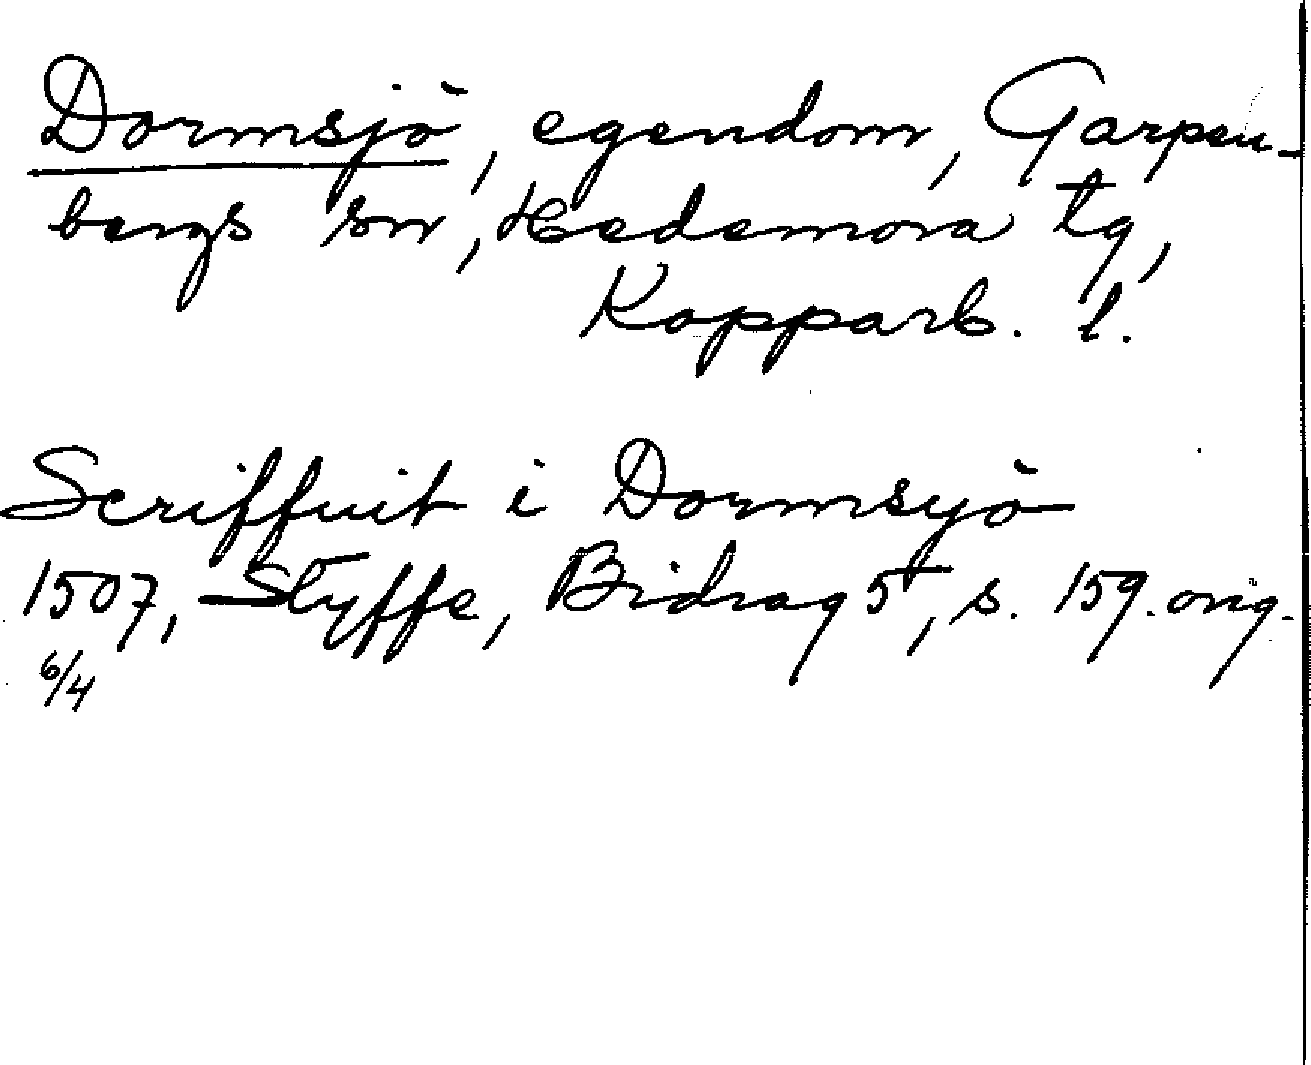 Dormsjö, egendom, Garpen-
bergs sn, Hedemora tg,
Kopparb. l.
Scriffuit i Dormsyö
1507, Styffe, Bidrag 5, s. 159. orig.
6/4